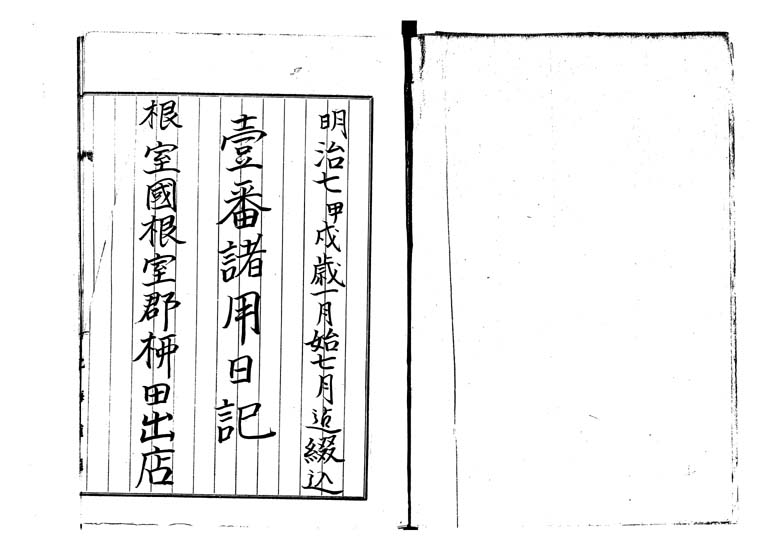 明治七甲戌歳一月始七月迄綴込
壹番諸用日記
根室國根室郡栖田出店